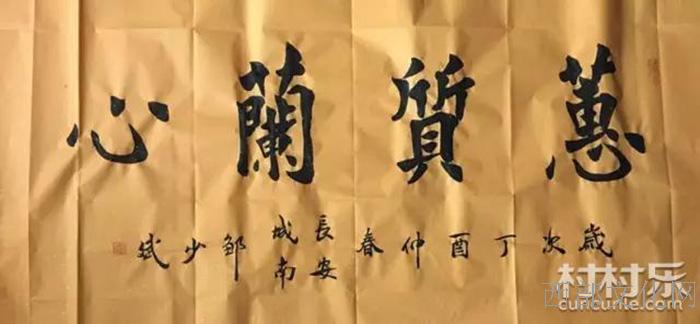 蕙質蘭心
歲次丁酉仲春長安城南鄒少斌
村村乐
cuncunle.com